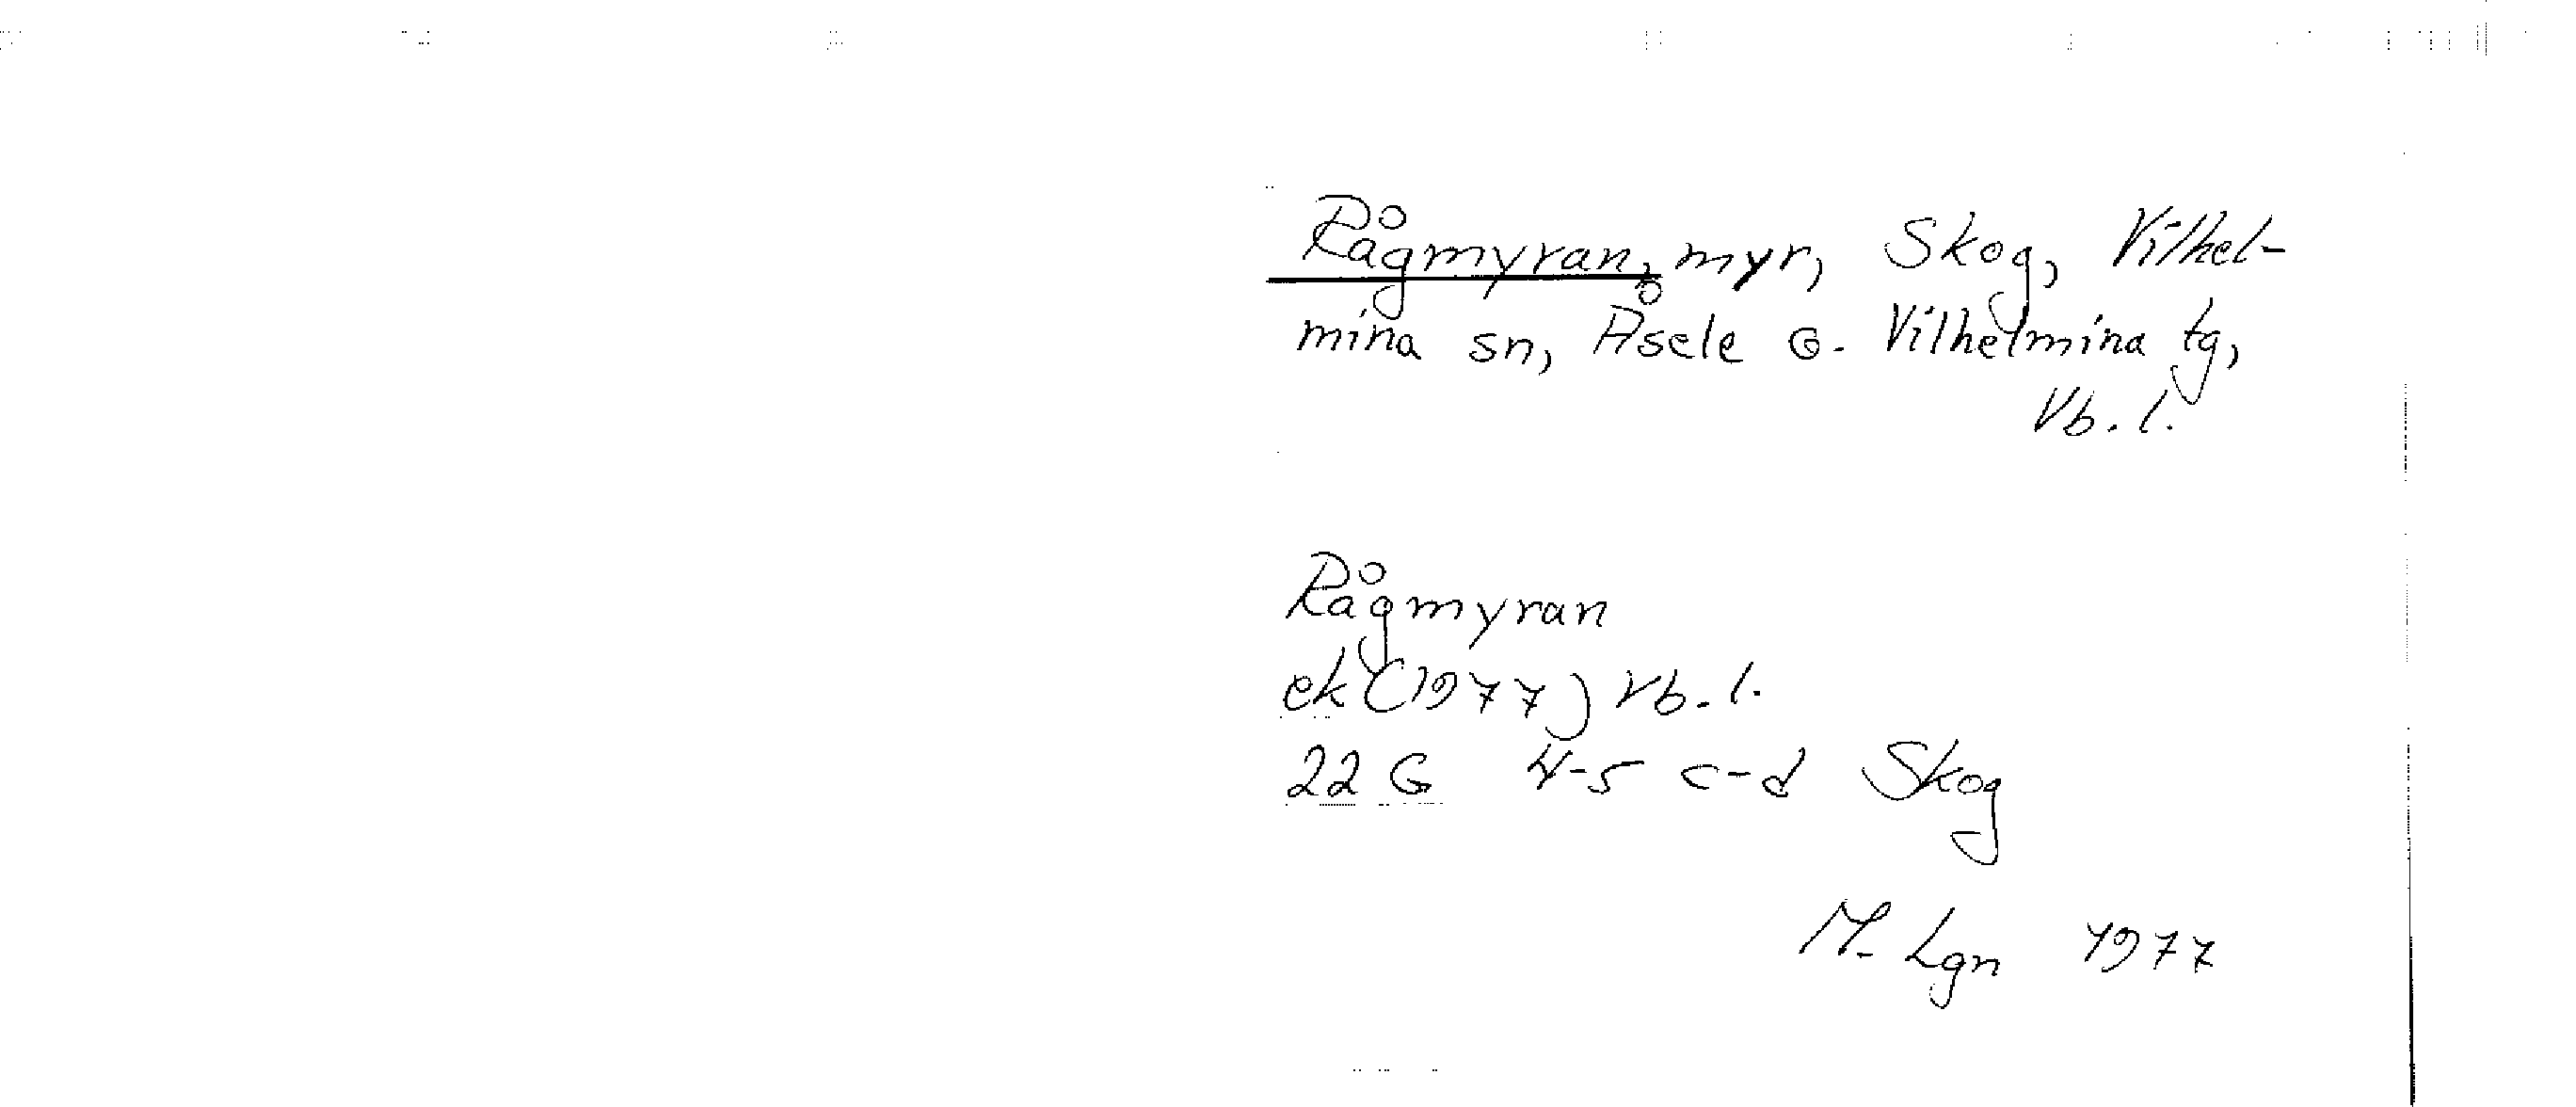 Rågmyran, myr, Skog, Vilhel-
mina sn, Åsele o. Vilhelmina tg,
Vb. l.
Rågmyran
ek (1977) Vb. l.
22 G 4-5 c-d Skog
M. Lgn 1977